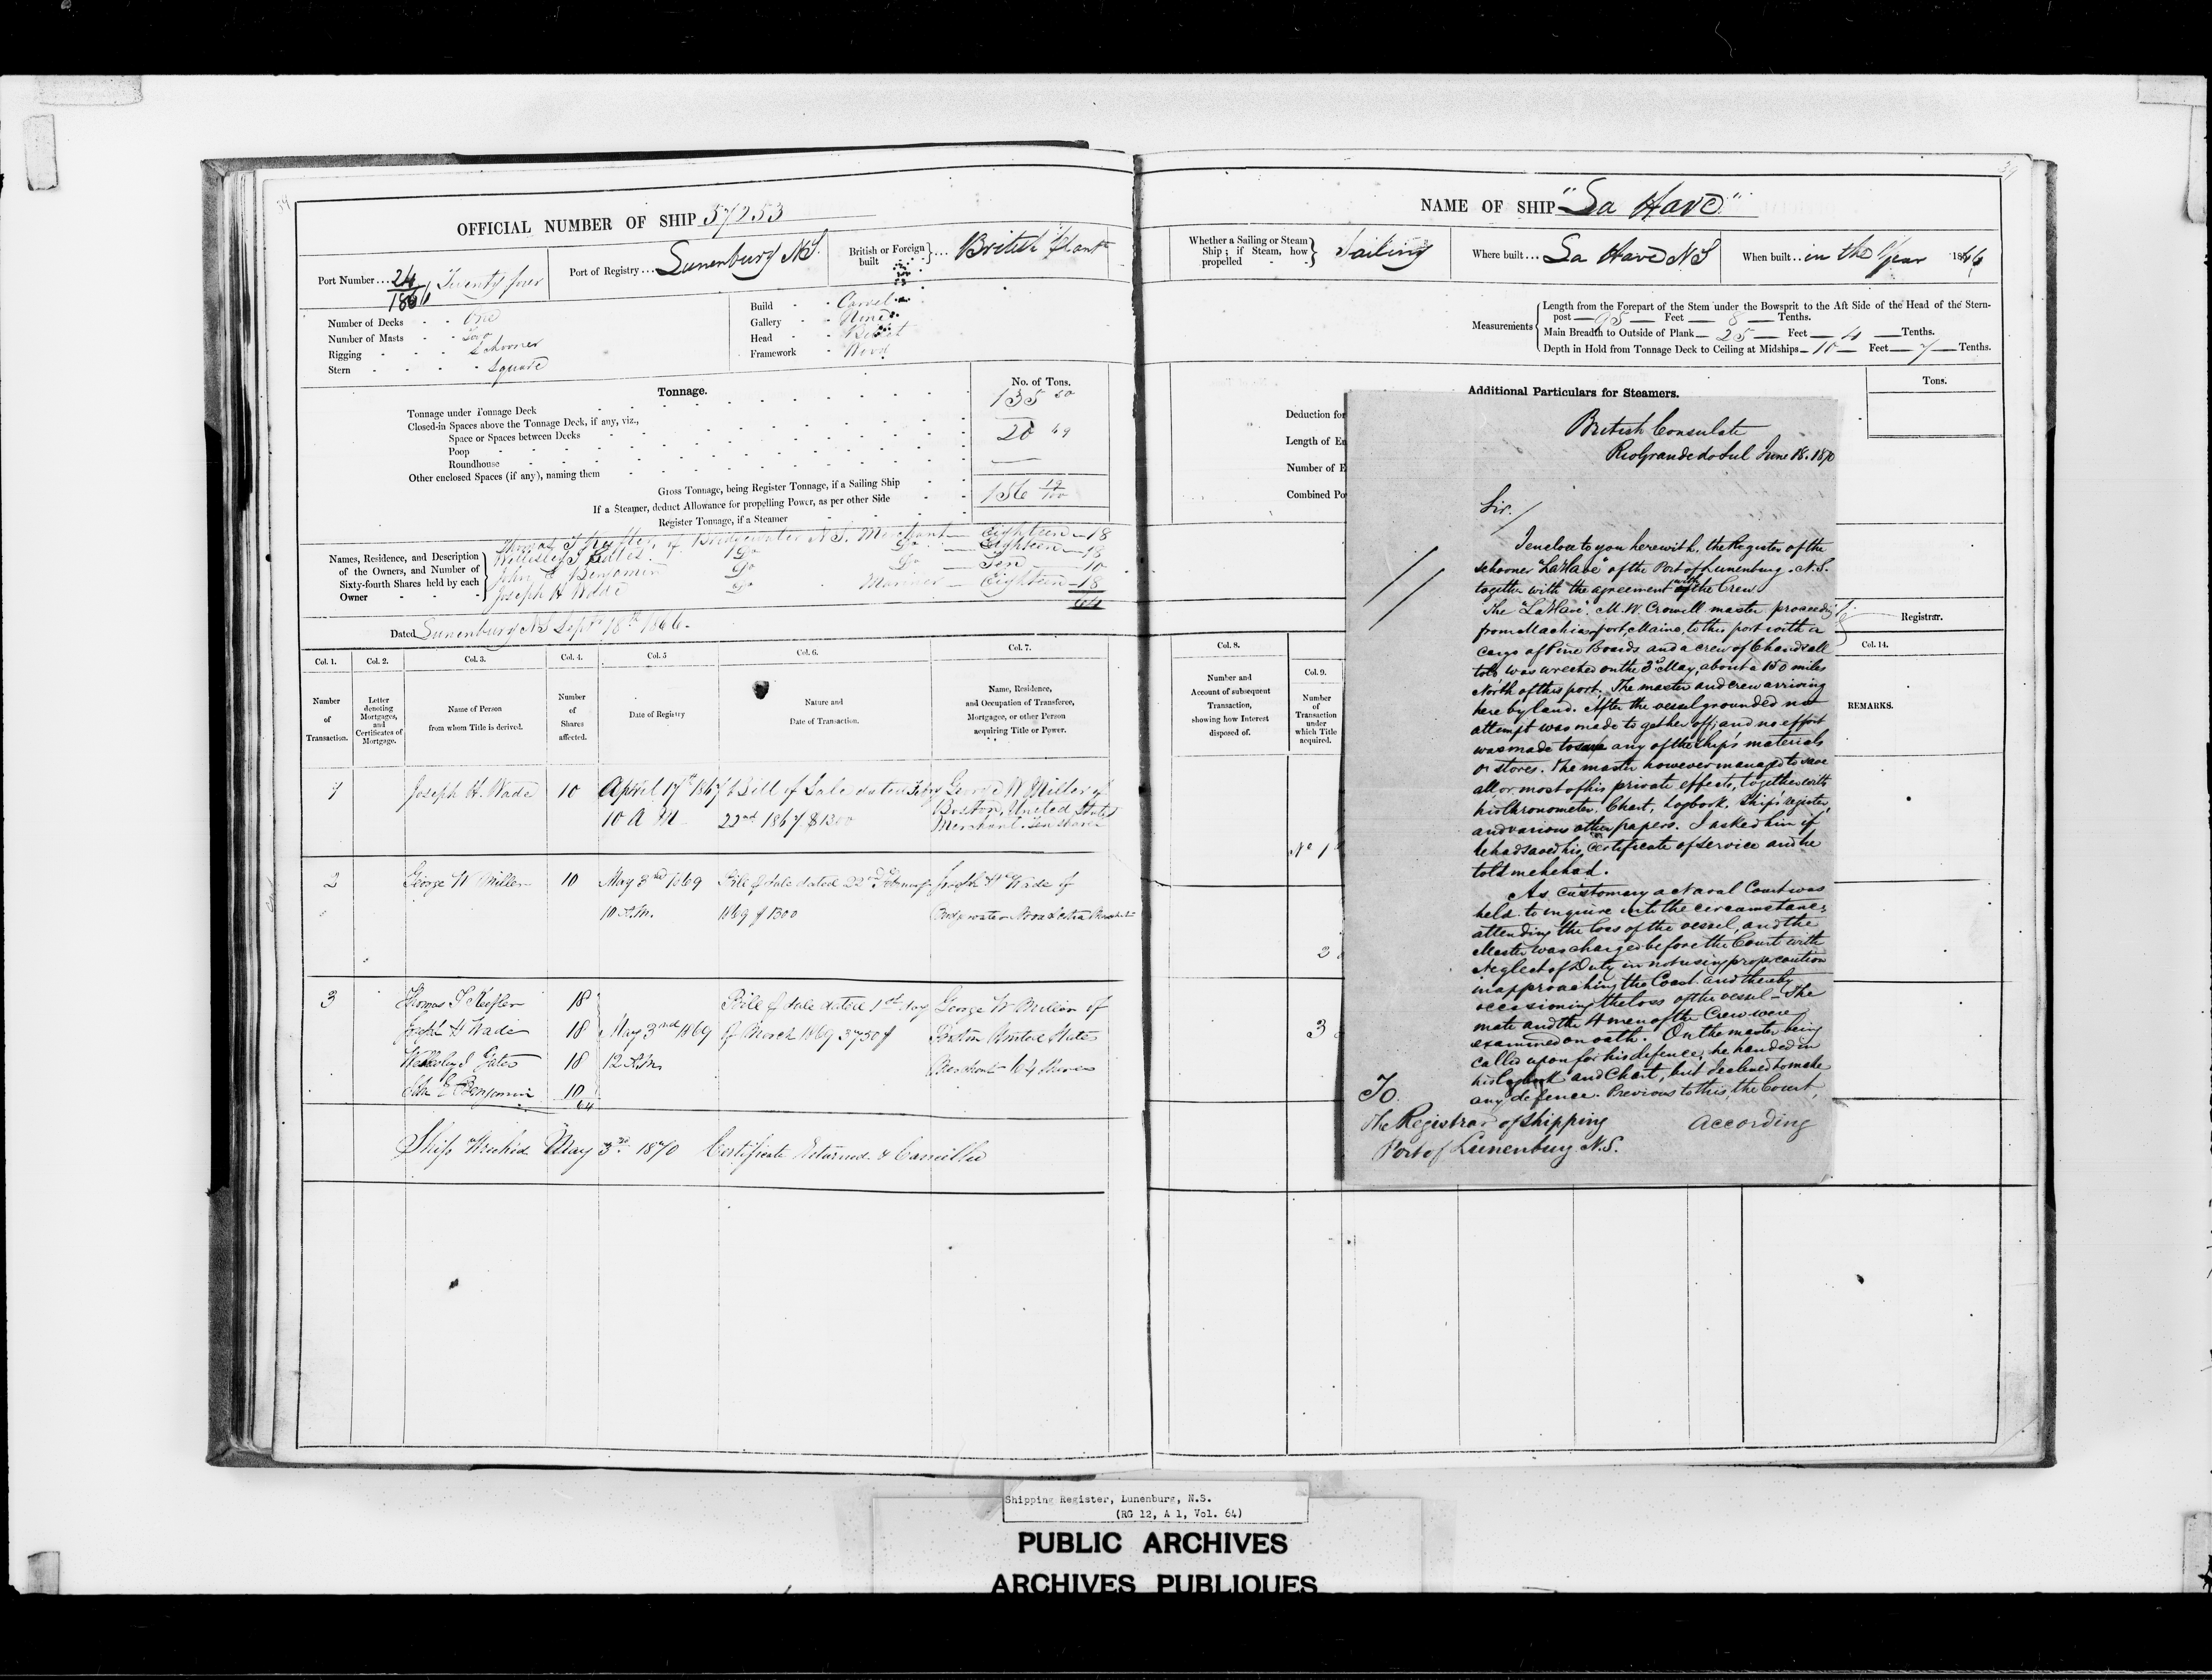 OFFICIAL NUMBER OF SHIP 57253
Port Number... 24/1866 Twenty four
Port of Registry... Lunenburg N.S.
British or Foreign built } ... British Plant
Number of Decks - - One
Number of Masts - - Two
Rigging - - - Schooner
Stern - - - - Square
Build - - Carvel
Gallery - -
Head - -
Framework - Wood
Tonnage.
No. of Tons.
Tonnage under Tonnage Deck
135 50
Closed-in Spaces above the Tonnage Deck, if any, viz.,
Space or Spaces between Decks
20 69
Poop
Roundhouse
Other enclosed Spaces (if any), naming them
Gross Tonnage, being Register Tonnage, if a Sailing Ship
156 19/100
If a Steamer, deduct Allowance for propelling Power, as per other Side
Register Tonnage, if a Steamer
Names, Residence, and Description of the Owners, and Number of Sixty-fourth Shares held by each Owner
Thomas of Bridgewater N.S. Merchant — Eighteen — 18
Do Do — Eighteen — 18
John E Benjamin Do Do — Ten — 10
Joseph H Wade Do Mariner — Eighteen — 18
64
Dated Lunenburg NS Sept 18th 1866.
Col. 1. Col. 2. Col. 3. Col. 4. Col. 5 Col. 6. Col. 7.
Number of Transaction.
Letter denoting Mortgages, and Certificates of Mortgage.
Name of Person from whom Title is derived.
Number of Shares affected.
Date of Registry
Nature and Date of Transaction.
Name, Residence, and Occupation of Transferee, Mortgagee, or other Person acquiring Title or Power.
1 Joseph H. Wade 10 April 17th 1867 Bill of Sale dated Feby George W Miller of
10 A M 22nd 1867 $1300 Boston, United States
Merchant. Ten shares
2 George W Miller 10 May 3rd 1869 Bill of Sale dated 22nd February Joseph H Wade of
10 A.M. 1869 $1300 Bridgewater Nova Scotia
3 Thomas 18 Bill of Sale dated 1st day George W Miller of
Joseph H Wade 18 May 3nd 1869 of March 1869 3750$ Boston United States
18 12 A.M. Merchant 64 Shares
John E Benjamin 10
64
Ship Wrecked May 3rd 1870 Certificate Returned & Cancelled
NAME OF SHIP "La Have"
Whether a Sailing or Steam Ship; if Steam, how propelled } Sailing
Where built... La Have NS
When built.. in the Year 1866
Measurements
Length from the Forepart of the Stem under the Bowsprit to the Aft Side of the Head of the Stern-
post — 95 — Feet — 8 — Tenths.
Main Breadth to Outside of Plank — 25 — Feet — 4 — Tenths.
Depth in Hold from Tonnage Deck to Ceiling at Midships — 10 — Feet — 7 — Tenths.
Additional Particulars for Steamers.
Tons.
Deduction for
Length of En
Number of E
Combined Po
Registrar.
Col. 8. Col. 9. Col. 14.
Number and Account of subsequent Transaction, showing how Interest disposed of.
Number of Transaction under which Title acquired.
REMARKS.
No 1
2
3
British Consulate
Rio Grande do Sul June 18. 1870
Sir./
I enclose to you herewith, the Register of the
schooner "La Have" of the Port of Lunenburg. N.S.
together with the agreement with the Crew.
The "La Have". M.W. Crowell master proceeding
from Machiasport, Maine, to this port with a
cargo of Pine Boards and a crew of 6 hands all
told was wrecked on the 3d May, about a 150 miles
North of this port. The master and crew arriving
here by land. After the vessel grounded no
attempt was made to get her off; and no effort
was made to save any of the ship's materials
or stores. The master however managed to save
all, or most of his private effects, together with
his Chronometer, Chart, Logbook, Ship's register,
and various other papers. I asked him if
he had saved his Certificate of service and he
told me he had.
As customary a Naval Court was
held to inquire into the circumstances
attending the loss of the vessel, and the
Master was charged before the Court with
Neglect of Duty in not using proper caution
in approaching the Coast and thereby
occasioning the loss of the vessel — The
mate and the 4 men of the Crew were
examined on oath. On the master being
called upon for his defence, he handed in
his Logbook and Chart, but declined to make
any defence. Previous to this, the Court,
According
To
The Registrar of Shipping
Port of Lunenburg N.S.
Shipping Register, Lunenburg, N.S.
(RG 12, A 1, Vol. 64)
PUBLIC ARCHIVES
ARCHIVES PUBLIQUES